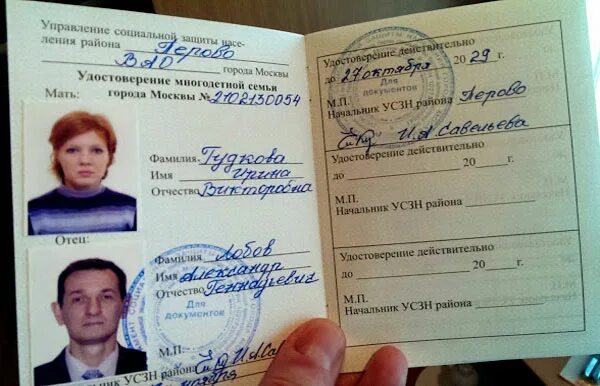 Управление социальной защиты насе-
ления района Перово
ВАО города Москвы
Удостоверение многодетной семьи
Мать: города Москвы № 2102130054
Фамилия Гудкова
Имя Ирина
Отчество Викторовна
Отец:
Фамилия Лобов
Имя Александр
Отчество Геннадьевич
Для
документов
М.П.
Начальник УСЗН района
Удостоверение действительно
до 27 октября 2029 г.
Для
документов
М.П.
Начальник УСЗН района Перово
И.А.Савельева
Удостоверение действительно
до 20 г.
М.П.
Начальник УСЗН района
Удостоверение действительно
до 20 г.
М.П.
Начальник УСЗН района